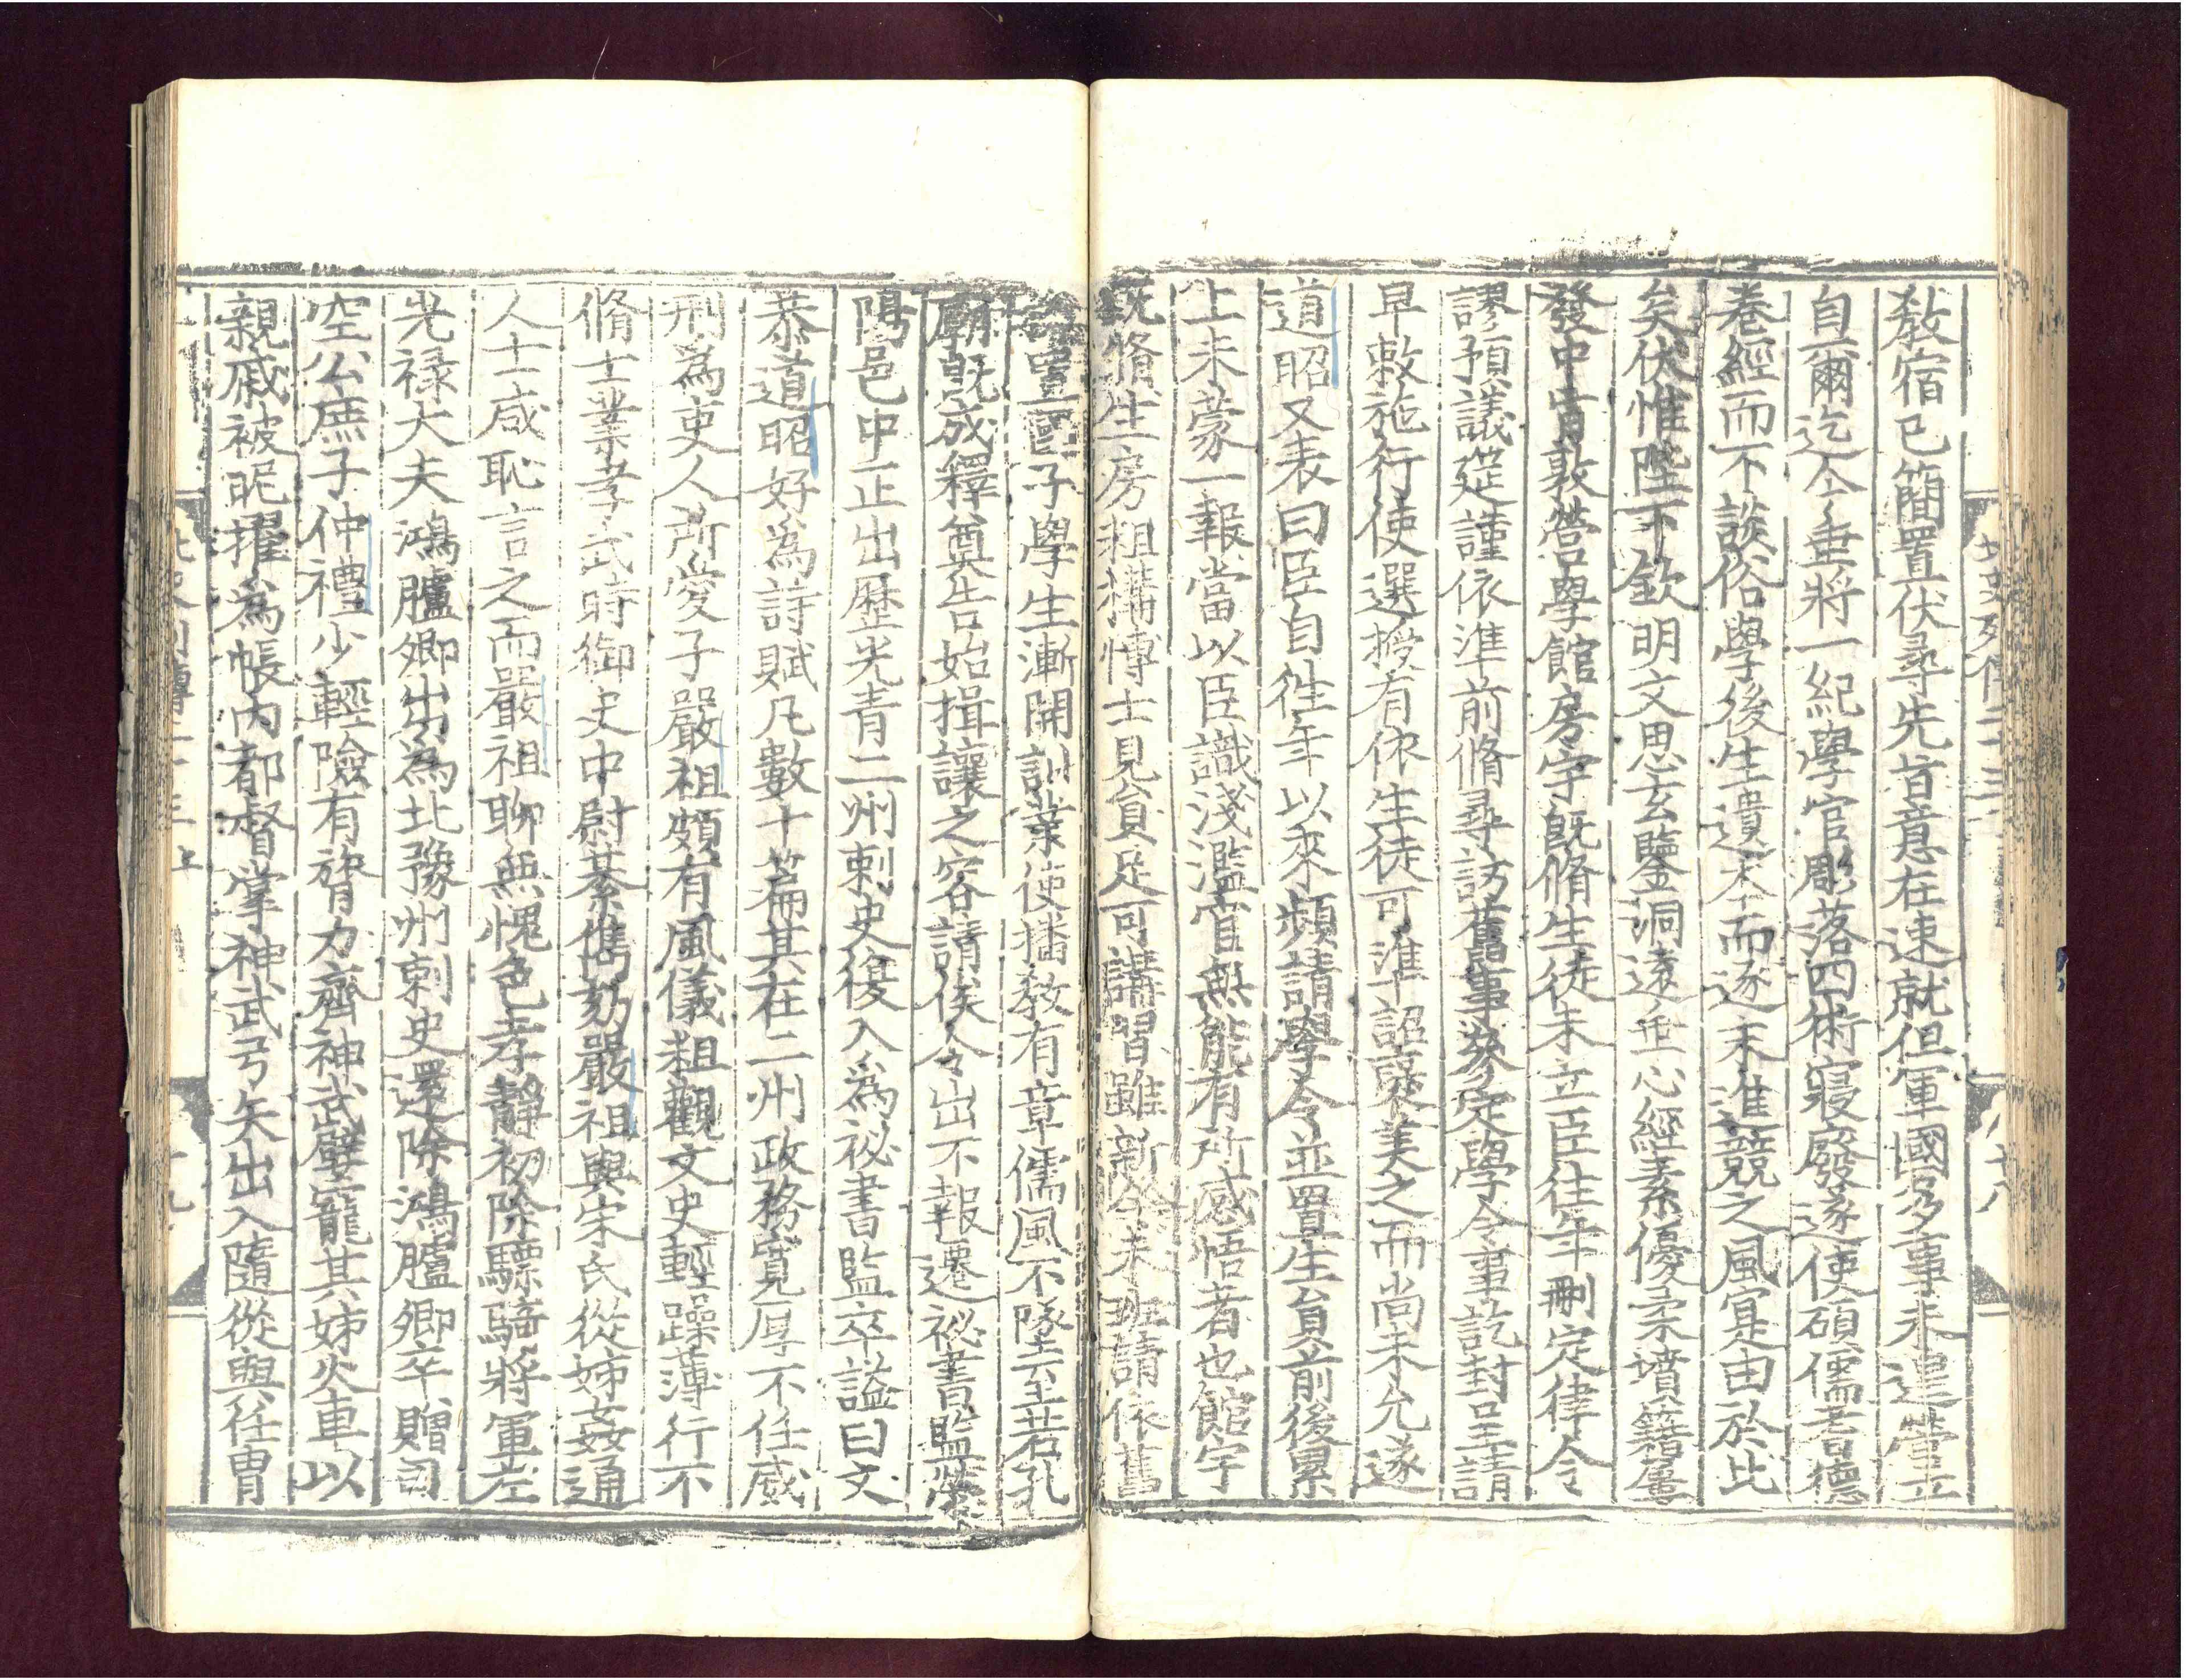 北史列傳二十三
八十八
敎宿已簡置伏尋先旨意在速就但軍國多事未遑營立
自爾迄今垂將一紀學官彫落四術寢廢遂使碩儒耆德
卷經而不談俗學後生遺本而逐末進競之風寔由於此
矣伏惟陛下欽明文思玄鑒洞遠垂心經素優柔墳籍屢
發中旨敦營學館房宇旣脩生徒未立臣往年刪定律令
謬預議筵謹依準前脩尋訪舊事叅定學令事訖封呈請
早敕施行使選授有依生徒可準詔襃美之而尚未允遂
道昭又表曰臣自徃年以來頻請學令並置生員前後累
上未蒙一報當以臣識淺濫官無能有所感悟者也館宇
旣脩生房粗構愽士見負足可講習雖新令未班請依舊
置國子學生漸開訓業使播敎有章儒風不墜至若孔
廟旣成釋奠告始揖讓之容請俟令出不報遷祕書監滎
陽邑中正出歷光青二州刺史復入爲祕書監卒謚曰文
恭道昭好爲詩賦凡數十篇其在二州政務寬厚不任威
刑爲吏人所愛子嚴祖頗有風儀粗觀文史輕躁薄行不
脩士業孝武時御史中尉綦儁劾嚴祖與宋氏從姊姦通
人士咸恥言之而嚴祖聊無愧色孝靜初除驃騎將軍左
光禄大夫鴻臚卿出爲北豫州刺史還除鴻臚卿卒贈司
空公庶子仲禮少輕險有膂力齊神武嬖寵其姊火車以
親戚被昵擢爲帳內都督掌神武弓矢出入隨從與任冑